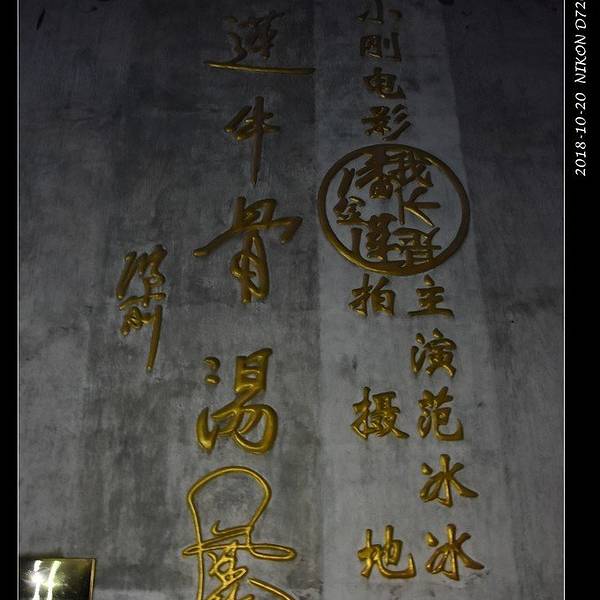 小刚电影
我不是
潘金莲
主演范冰冰
拍摄地
莲牛骨汤
冯小刚
2018-10-20 NIKON D72